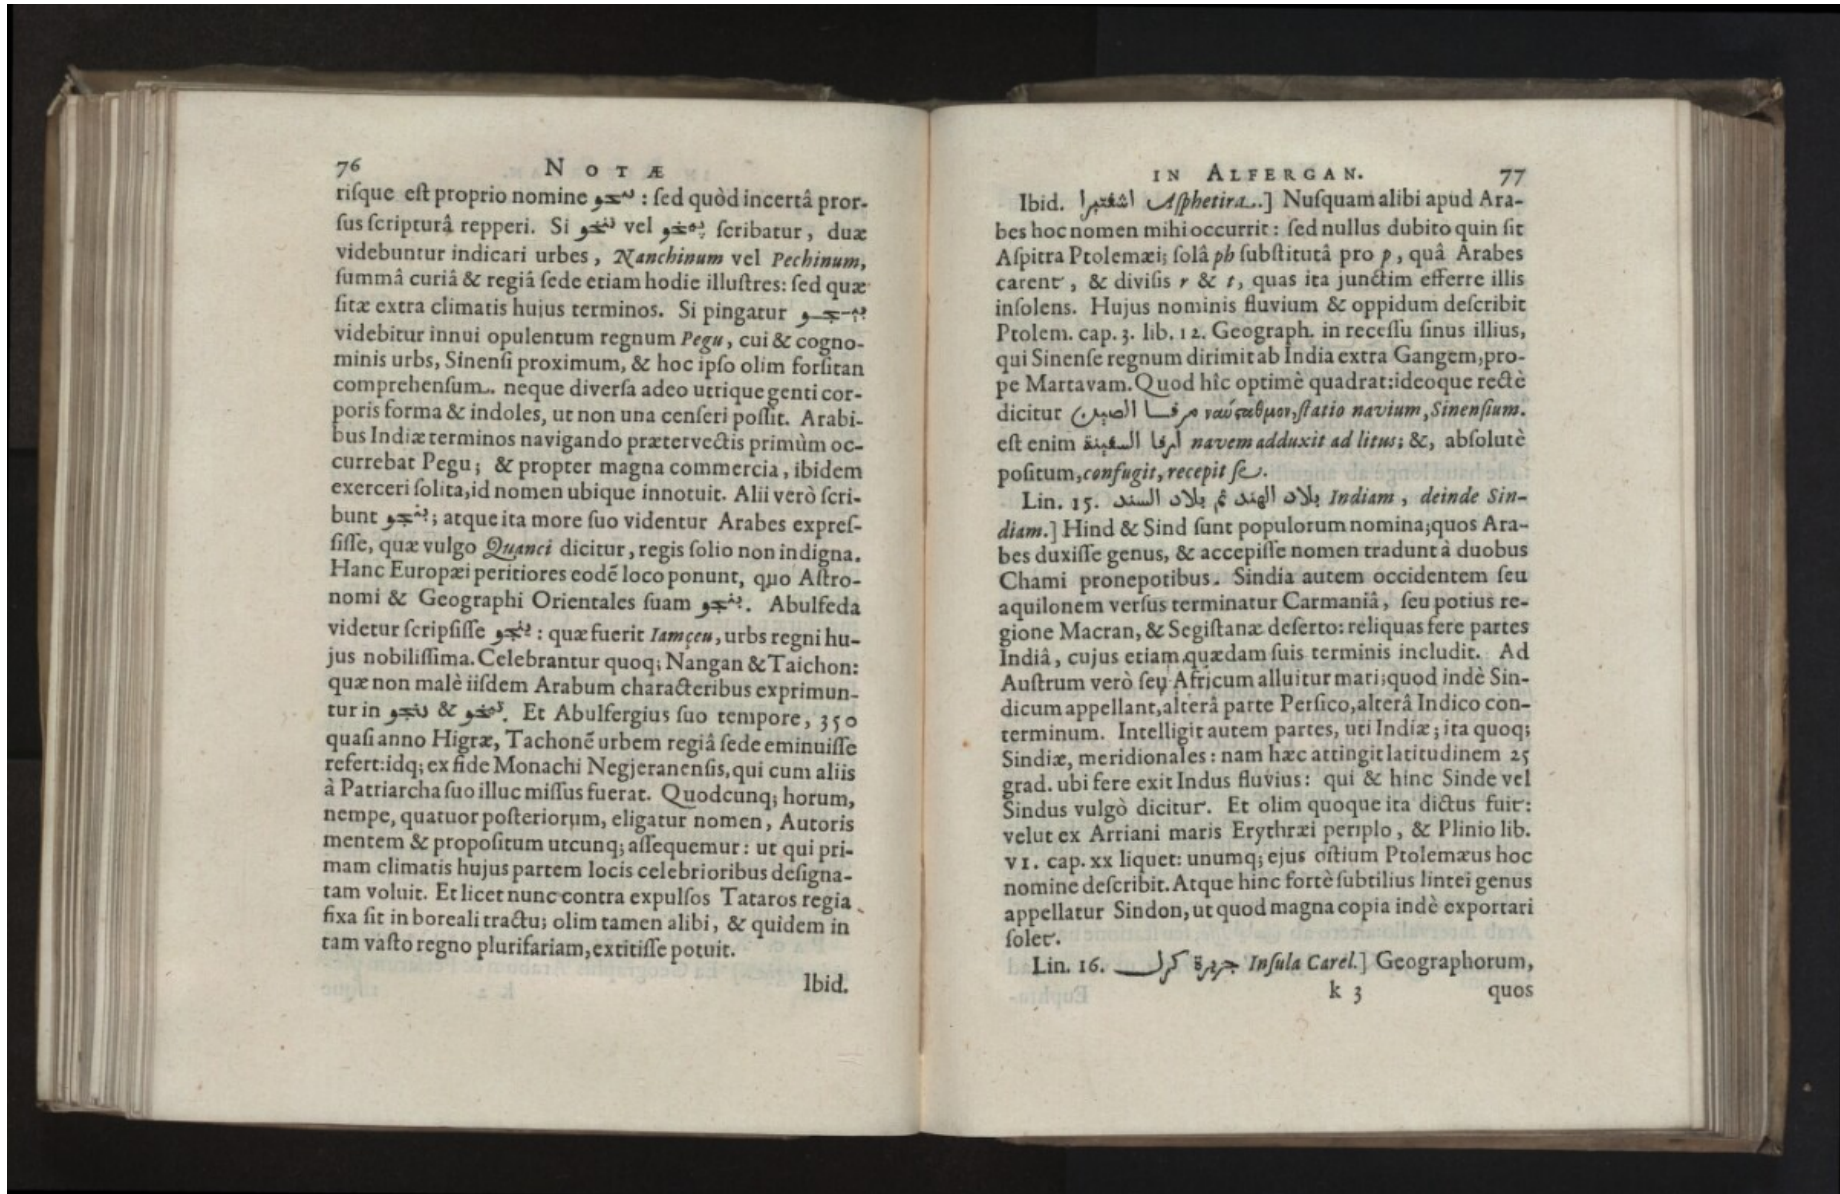 76 NOTÆ
riſque eſt proprio nomine : ſed quòd incertâ pror-
ſus ſcripturâ repperi. Si vel ſcribatur, duæ
videbuntur indicari urbes, Nanchinum vel Pechinum,
ſummâ curiâ & regiâ ſede etiam hodie illuſtres: ſed quæ
ſitæ extra climatis hujus terminos. Si pingatur
videbitur innui opulentum regnum Pegu, cui & cogno-
minis urbs, Sinenſi proximum, & hoc ipſo olim forſitan
comprehenſum. neque diverſa adeo utrique genti cor-
poris forma & indoles, ut non una cenſeri poſſit. Arabi-
bus Indiæ terminos navigando prætervectis primùm oc-
currebat Pegu; & propter magna commercia, ibidem
exerceri ſolita, id nomen ubique innotuit. Alii verò ſcri-
bunt ; atque ita more ſuo videntur Arabes expreſ-
ſiſſe, quæ vulgo Quanci dicitur, regis ſolio non indigna.
Hanc Europæi peritiores eodē loco ponunt, quo Aſtro-
nomi & Geographi Orientales ſuam . Abulfeda
videtur ſcripſiſſe : quæ fuerit Iamçeu, urbs regni hu-
jus nobiliſſima. Celebrantur quoq; Nangan & Taichon:
quæ non malè iiſdem Arabum characteribus exprimun-
tur in & . Et Abulfergius ſuo tempore, 350
quaſi anno Higræ, Tachonē urbem regiâ ſede eminuiſſe
refert: idq; ex fide Monachi Negjeranenſis, qui cum aliis
à Patriarcha ſuo illuc miſſus fuerat. Quodcunq; horum,
nempe, quatuor poſteriorum, eligatur nomen, Autoris
mentem & propoſitum utcunq; aſſequemur: ut qui pri-
mam climatis hujus partem locis celebrioribus deſigna-
tam voluit. Et licet nunc contra expulſos Tataros regia
fixa ſit in boreali tractu; olim tamen alibi, & quidem in
tam vaſto regno plurifariam, extitiſſe potuit.
Ibid.
IN ALFERGAN. 77
Ibid. اشفتيرا Aſphetira.] Nuſquam alibi apud Ara-
bes hoc nomen mihi occurrit: ſed nullus dubito quin ſit
Aſpitra Ptolemæi; ſolâ ph ſubſtitutâ pro p, quâ Arabes
carent, & diviſis r & t, quas ita junctim efferre illis
inſolens. Hujus nominis fluvium & oppidum deſcribit
Ptolem. cap. 3. lib. 12. Geograph. in receſſu ſinus illius,
qui Sinenſe regnum dirimit ab India extra Gangem, pro-
pe Martavam. Quod hîc optimè quadrat: ideoque rectè
dicitur مرفا الصين ναύσαθμον, ſtatio navium, Sinenſium.
eſt enim ارفا السفينة navem adduxit ad litus; &, abſolutè
poſitum, confugit, recepit ſe.
Lin. 15. بلاد الهند ثم بلاد السند Indiam, deinde Sin-
diam.] Hind & Sind ſunt populorum nomina; quos Ara-
bes duxiſſe genus, & accepiſſe nomen tradunt à duobus
Chami pronepotibus. Sindia autem occidentem ſeu
aquilonem verſus terminatur Carmaniâ, ſeu potius re-
gione Macran, & Segiſtanæ deſerto: reliquas fere partes
Indiâ, cujus etiam quædam ſuis terminis includit. Ad
Auſtrum verò ſeu Africum alluitur mari; quod indè Sin-
dicum appellant, alterâ parte Perſico, alterâ Indico con-
terminum. Intelligit autem partes, uti Indiæ; ita quoq;
Sindiæ, meridionales: nam hæc attingit latitudinem 25
grad. ubi fere exit Indus fluvius: qui & hinc Sinde vel
Sindus vulgò dicitur. Et olim quoque ita dictus fuit:
velut ex Arriani maris Erythræi periplo, & Plinio lib.
VI. cap. XX liquet: unumq; ejus oſtium Ptolemæus hoc
nomine deſcribit. Atque hinc fortè ſubtilius lintei genus
appellatur Sindon, ut quod magna copia indè exportari
ſolet.
Lin. 16. جزيرة كرل Inſula Carel.] Geographorum,
k 3 quos